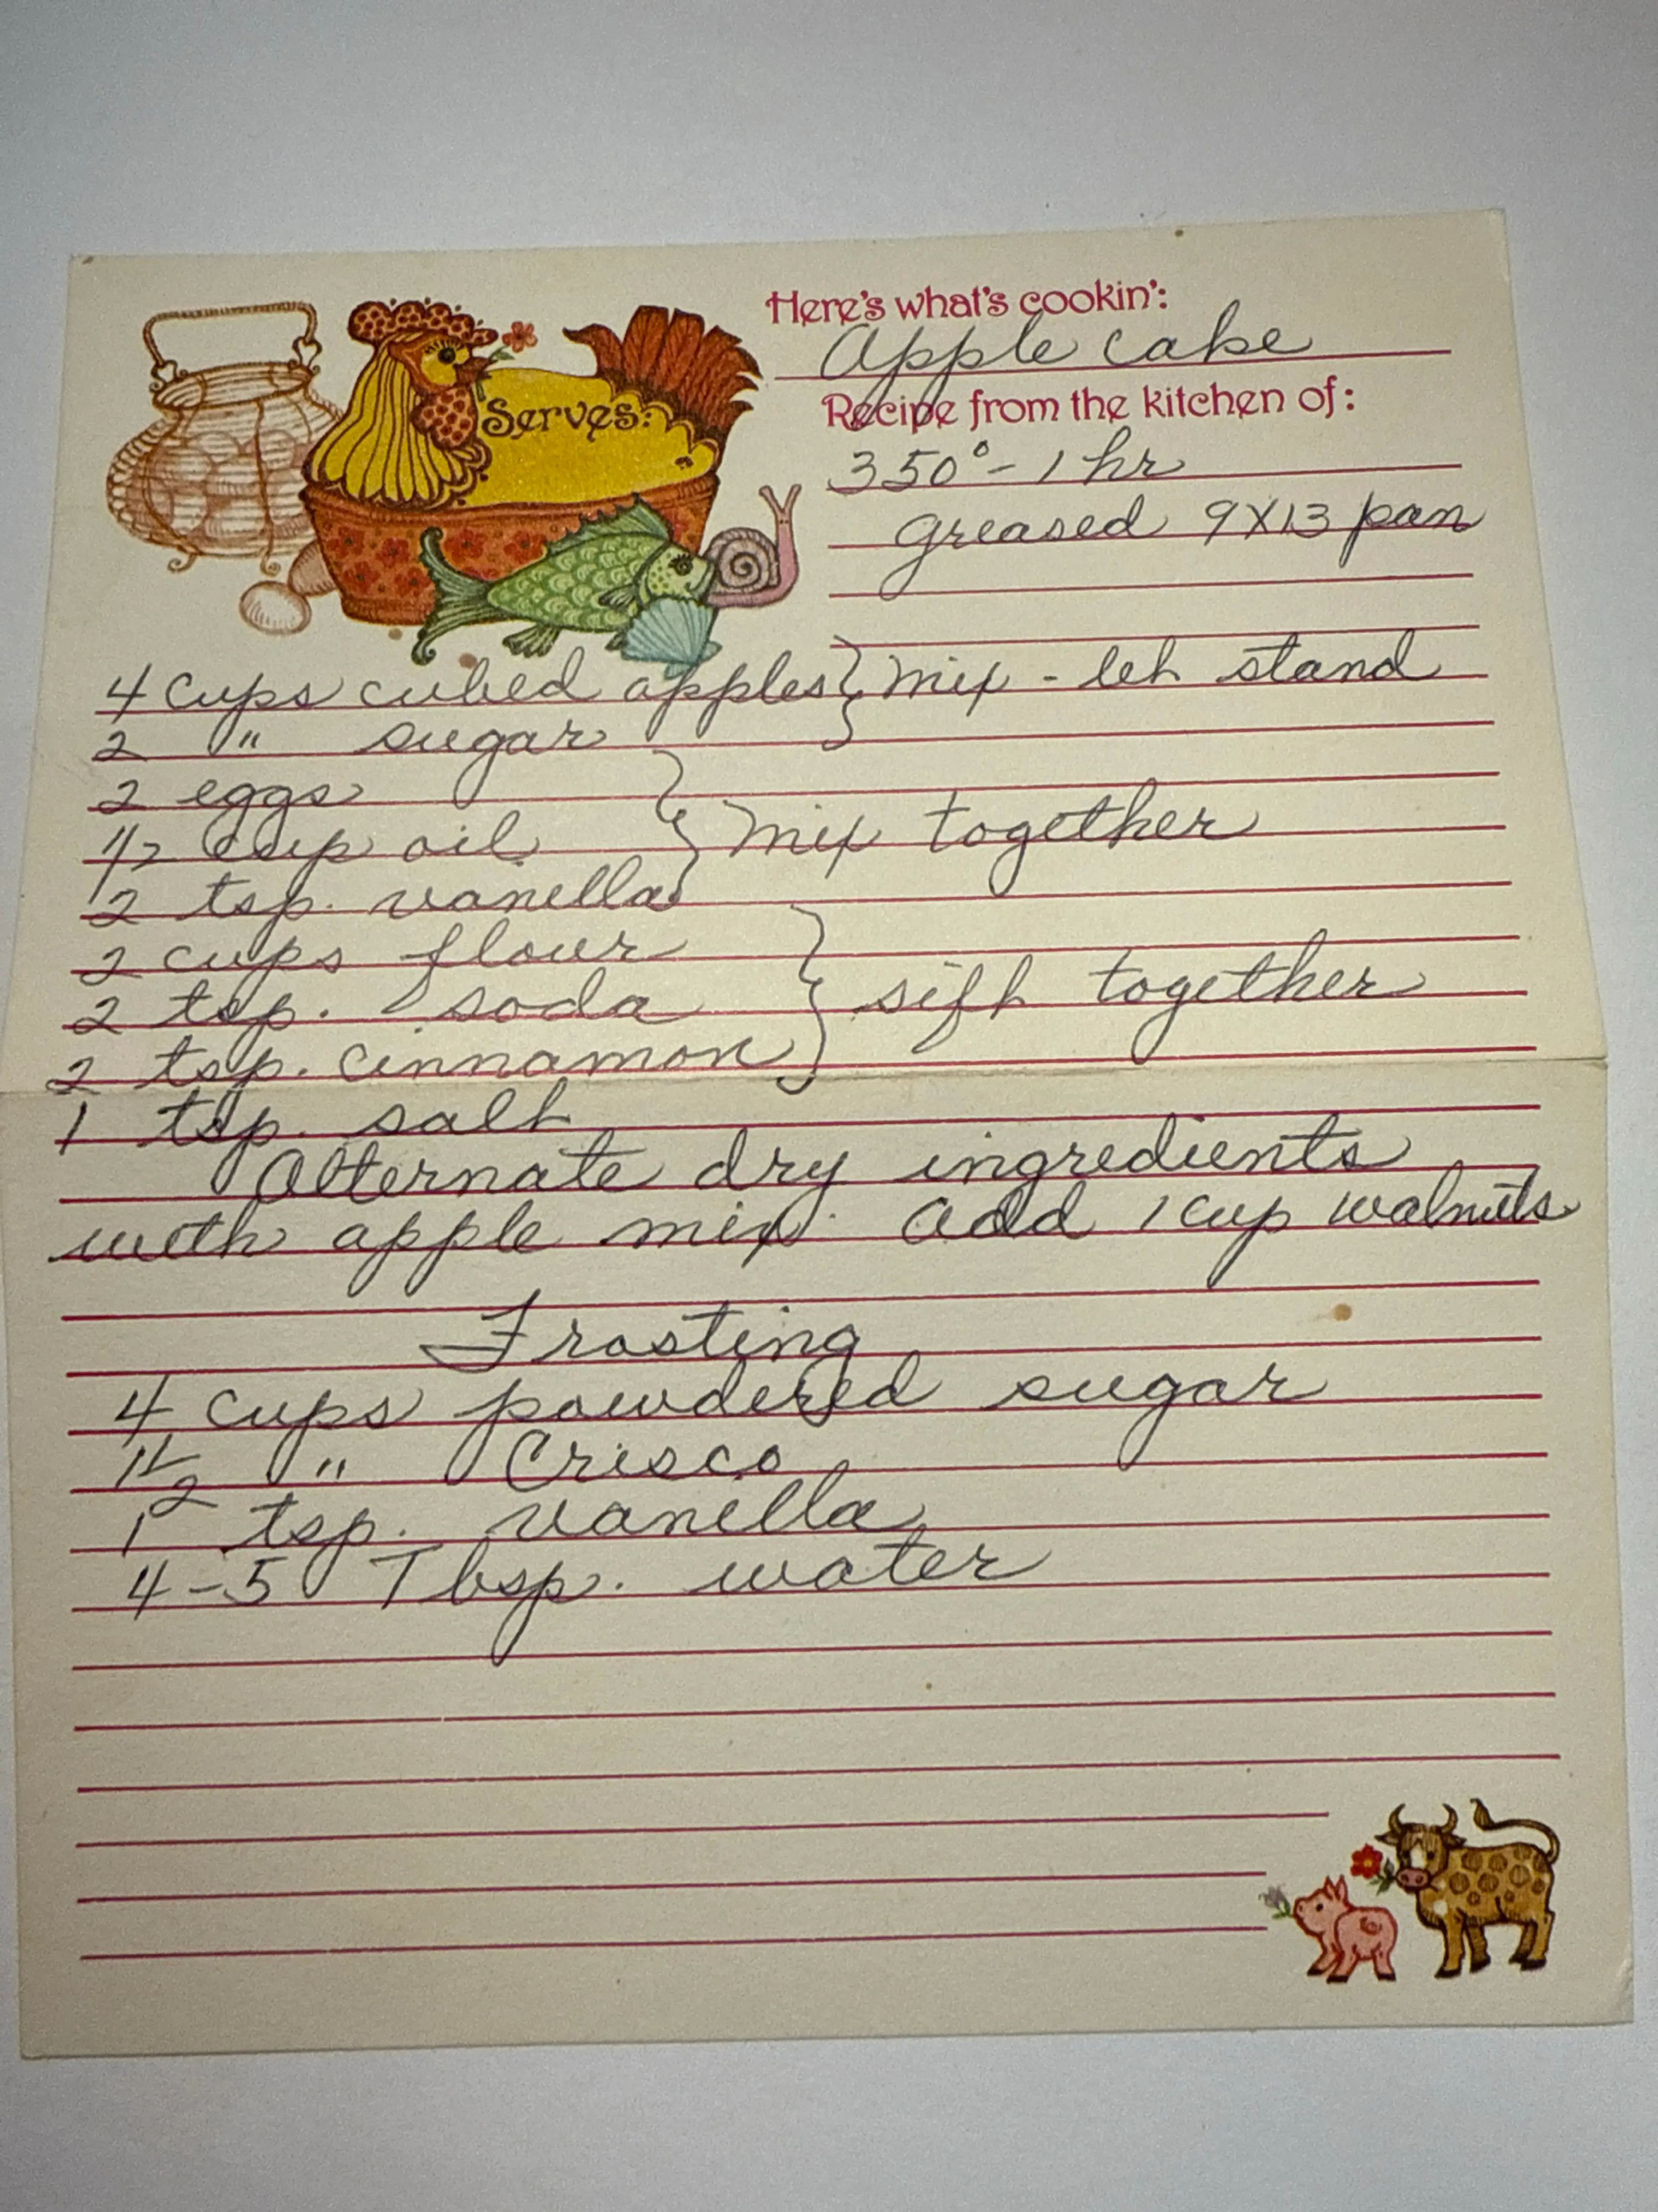 Here's what's cookin':
Apple Cake
Serves:
Recipe from the kitchen of:
350° - 1 hr
greased 9X13 pan
4 cups cubed apples } mix - let stand
2 " sugar
2 eggs
1/2 cup oil } mix together
2 tsp. vanilla
2 cups flour
2 tsp. soda } sift together
2 tsp. cinnamon
1 tsp. salt
Alternate dry ingredients
with apple mix. Add 1 cup walnuts
Frosting
4 cups powdered sugar
1 1/2 " Crisco
1 tsp. vanilla
4-5 Tbsp. water